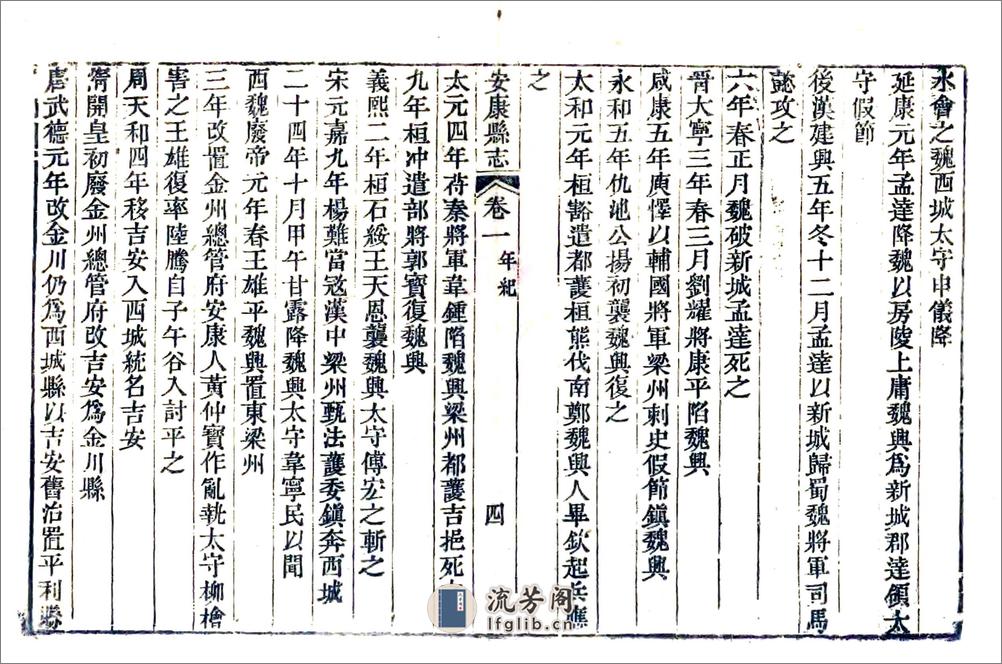 水會之魏西城太守申儀降
延康元年孟達降魏以房陵上庸魏興爲新城郡達領太
守假節
後漢建興五年冬十二月孟達以新城歸蜀魏將軍司馬
懿攻之
六年春正月魏破新城孟達死之
晉大寧三年春三月劉耀將康平陷魏興
咸康五年庾懌以輔國將軍梁州刺史假節鎭魏興
永和五年仇池公揚初襲魏興復之
太和元年桓豁遣都護桓熊伐南鄭魏興人畢欽起兵應
之
安康縣志
卷一
年紀
四
太元四年苻秦將軍韋鍾陷魏興梁州都護吉挹死
九年桓冲遣部將郭寶復魏興
義熙二年桓石綏王天恩襲魏興太守傅宏之斬之
宋元嘉九年楊難當寇漢中梁州甄法護委鎭奔西城
二十四年十月甲午甘露降魏興太守韋寧民以聞
西魏廢帝元年春王雄平魏興置東梁州
三年改置金州總管府安康人黃仲寶作亂執太守柳檜
害之王雄復率陸騰自子午谷入討平之
周天和四年移吉安入西城統名吉安
隋開皇初廢金州總管府改吉安爲金川縣
唐武德元年改金川仍爲西城縣以吉安舊治置平利縣
流芳阁
lfglib.cn